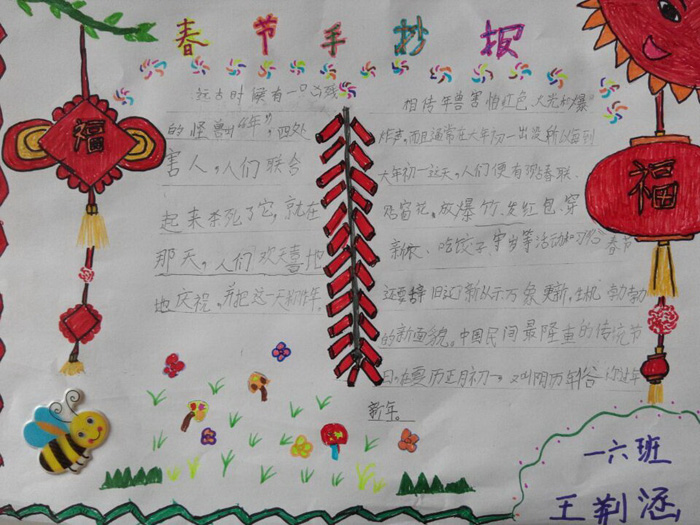 春节手抄报
福
远古时候有一个凶残
的怪兽叫“年”，四处
害人，人们联合
起来杀死了它，就在
那天，人们欢天喜地
地庆祝，并把这一天称作年，
相传年兽害怕红色、火光和爆
炸声，而且通常在大年初一出没，所以每到
大年初一这天，人们便有了贴春联、
贴窗花、放爆竹、发红包、穿
新衣、吃饺子、守岁等活动和习俗春节
还要辞旧迎新以示万象更新，生机勃勃
的新面貌。中国民间最隆重的传统节
日，在夏历正月初一，又叫阴历年俗称过年
新年。
福
一六班
王荆涵